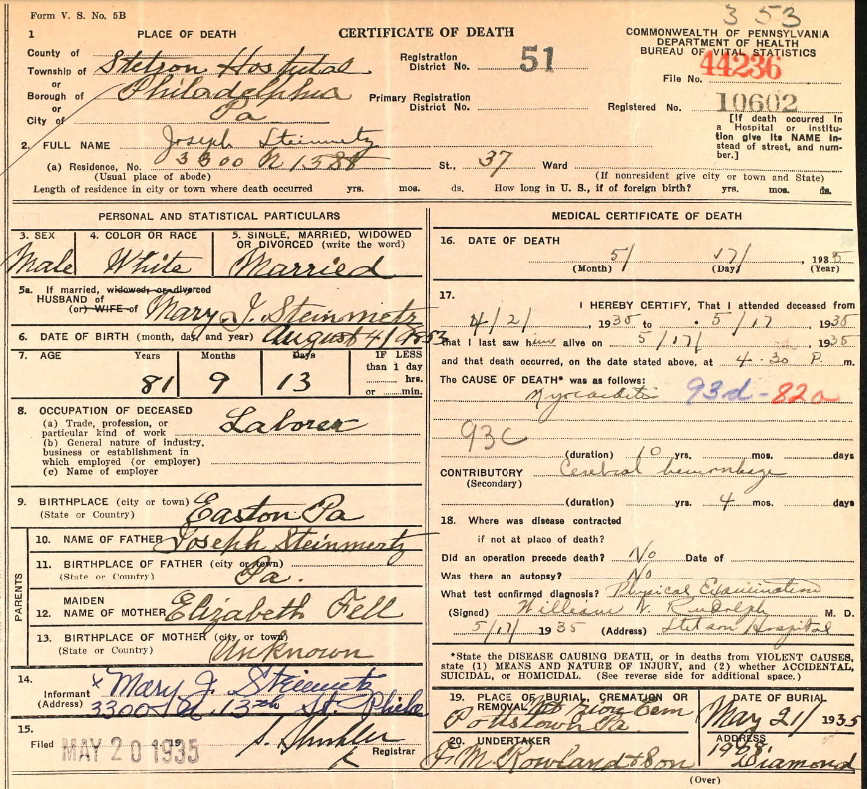 Form V. S. No. 5B
353
1 PLACE OF DEATH
CERTIFICATE OF DEATH
COMMONWEALTH OF PENNSYLVANIA
DEPARTMENT OF HEALTH
BUREAU OF VITAL STATISTICS
County of
Township of Stetson Hospital
or
Borough of Philadelphia
or
City of Pa
Registration District No. 51
Primary Registration District No.
File No. 44236
Registered No. 10602
[If death occurred in a Hospital or institution give its NAME instead of street, and number.]
2. FULL NAME Joseph Steinmetz
(a) Residence, No. 3300 N 13th St., 37 Ward
(Usual place of abode) (If nonresident give city or town and State)
Length of residence in city or town where death occurred yrs. mos. ds. How long in U. S., if of foreign birth? yrs. mos. ds.
PERSONAL AND STATISTICAL PARTICULARS
3. SEX Male
4. COLOR OR RACE White
5. SINGLE, MARRIED, WIDOWED OR DIVORCED (write the word) Married
5a. If married, widowed, or divorced
HUSBAND of
(or) WIFE of Mary J. Steinmetz
6. DATE OF BIRTH (month, day, and year) August 4/1853
7. AGE Years 81 Months 9 Days 13 IF LESS than 1 day hrs. or min.
8. OCCUPATION OF DECEASED
(a) Trade, profession, or particular kind of work Laborer
(b) General nature of industry, business or establishment in which employed (or employer)
(c) Name of employer
9. BIRTHPLACE (city or town)
(State or Country) Easton Pa
PARENTS
10. NAME OF FATHER Joseph Steinmertz
11. BIRTHPLACE OF FATHER (city or town)
(State or Country) Pa.
12. MAIDEN NAME OF MOTHER Elizabeth Fell
13. BIRTHPLACE OF MOTHER (city or town)
(State or Country) Unknown
14. Informant x Mary J. Steinmetz
(Address) 3300 N. 13th St. Phila
15. Filed MAY 20 1935 Registrar
MEDICAL CERTIFICATE OF DEATH
16. DATE OF DEATH 5/ 17/ 1935
(Month) (Day) (Year)
17. I HEREBY CERTIFY, That I attended deceased from
4/2/ 1935 to 5/17 1935
that I last saw him alive on 5/17/ 1935
and that death occurred, on the date stated above, at 4-30 P. m.
The CAUSE OF DEATH* was as follows:
Myocarditis 93d-82a
93c
(duration) 10 yrs. mos. days
CONTRIBUTORY Cerebral hemorrhage
(Secondary)
(duration) yrs. 4 mos. days
18. Where was disease contracted
if not at place of death?
Did an operation precede death? No Date of
Was there an autopsy? No
What test confirmed diagnosis? Physical Examination
(Signed) William N. Rudolph M. D.
5/17 1935 (Address) Stetson Hospital
*State the DISEASE CAUSING DEATH, or in deaths from VIOLENT CAUSES, state (1) MEANS AND NATURE OF INJURY, and (2) whether ACCIDENTAL, SUICIDAL, or HOMICIDAL. (See reverse side for additional space.)
19. PLACE OF BURIAL, CREMATION OR REMOVAL Mt Zion Cem
Pottstown Pa.
DATE OF BURIAL
May 21/ 1935
20. UNDERTAKER
F M Rowland & Son
ADDRESS
Diamond
(Over)